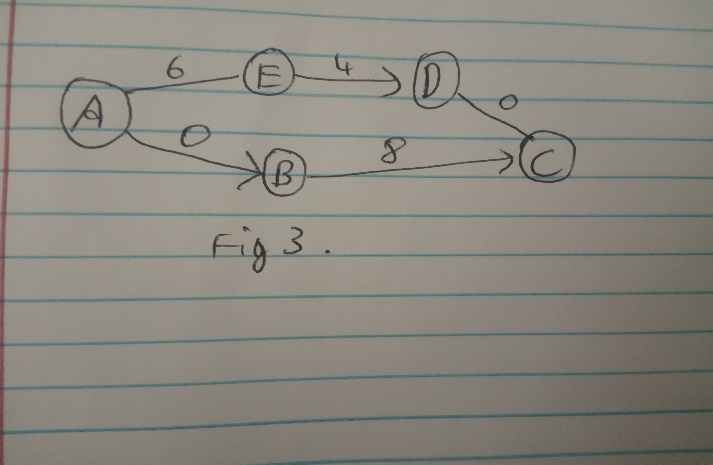 6 E 4 D 0
A 0 B 8 C
Fig 3.